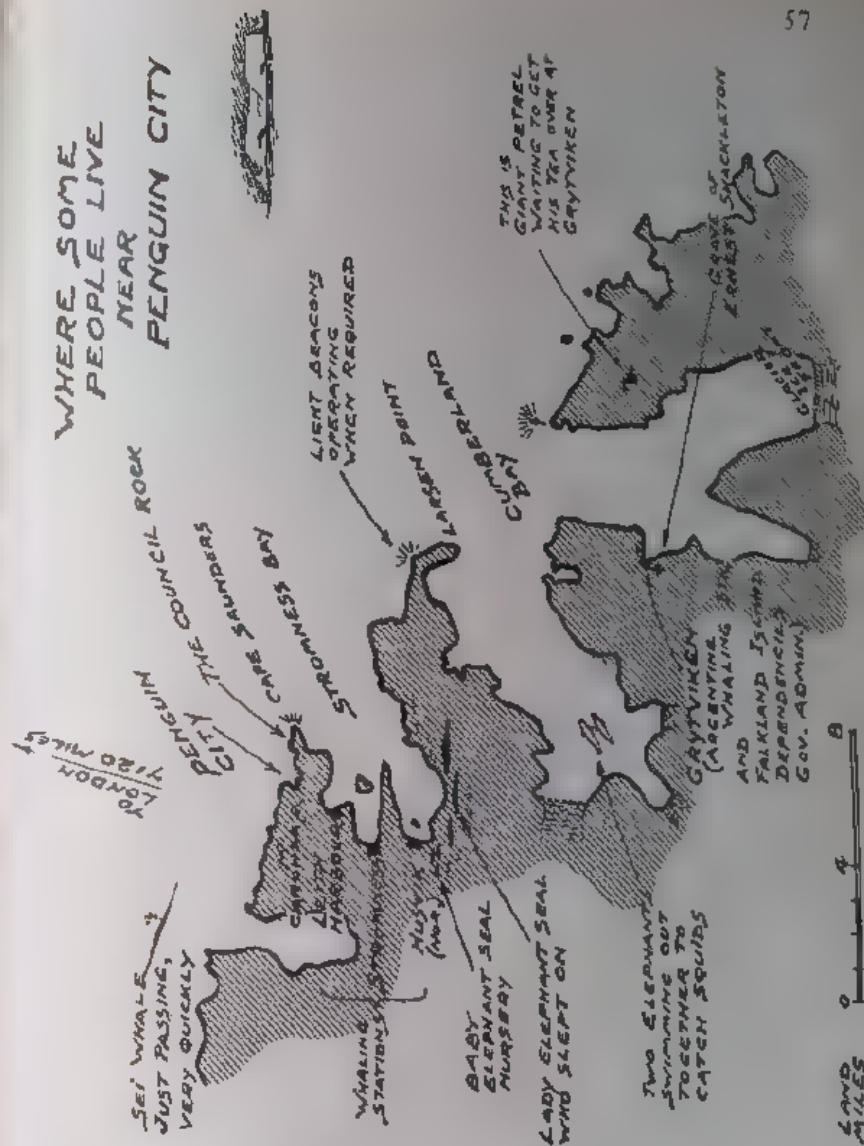 57
WHERE SOME
PEOPLE LIVE
NEAR
PENGUIN CITY
TO
LONDON
7120 MILES
SEI WHALE
JUST PASSING,
VERY QUICKLY
PENGUIN
CITY
THE COUNCIL ROCK
CAPE SAUNDERS
STROMNESS BAY
LIGHT BEACONS
OPERATING
WHEN REQUIRED
LARSEN POINT
CUMBERLAND
BAY
THIS IS
GIANT PETREL
WAITING TO GET
HIS TEA OVER AT
GRYTVIKEN
LEITH
HARBOUR
STROMNESS
HUSVIK
WHALING
STATIONS
BABY
ELEPHANT SEAL
NURSERY
LADY ELEPHANT SEAL
WHO SLEPT ON
TWO ELEPHANTS
SWIMMING OUT
TOGETHER TO
CATCH SQUIDS
GRYTVIKEN
(ARGENTINE
WHALING
AND
FALKLAND ISLAND
DEPENDENCIES
GOV. ADMIN)
GRAVE OF
ERNEST SHACKLETON
GLACIER
LAND
MILES
0 4 8